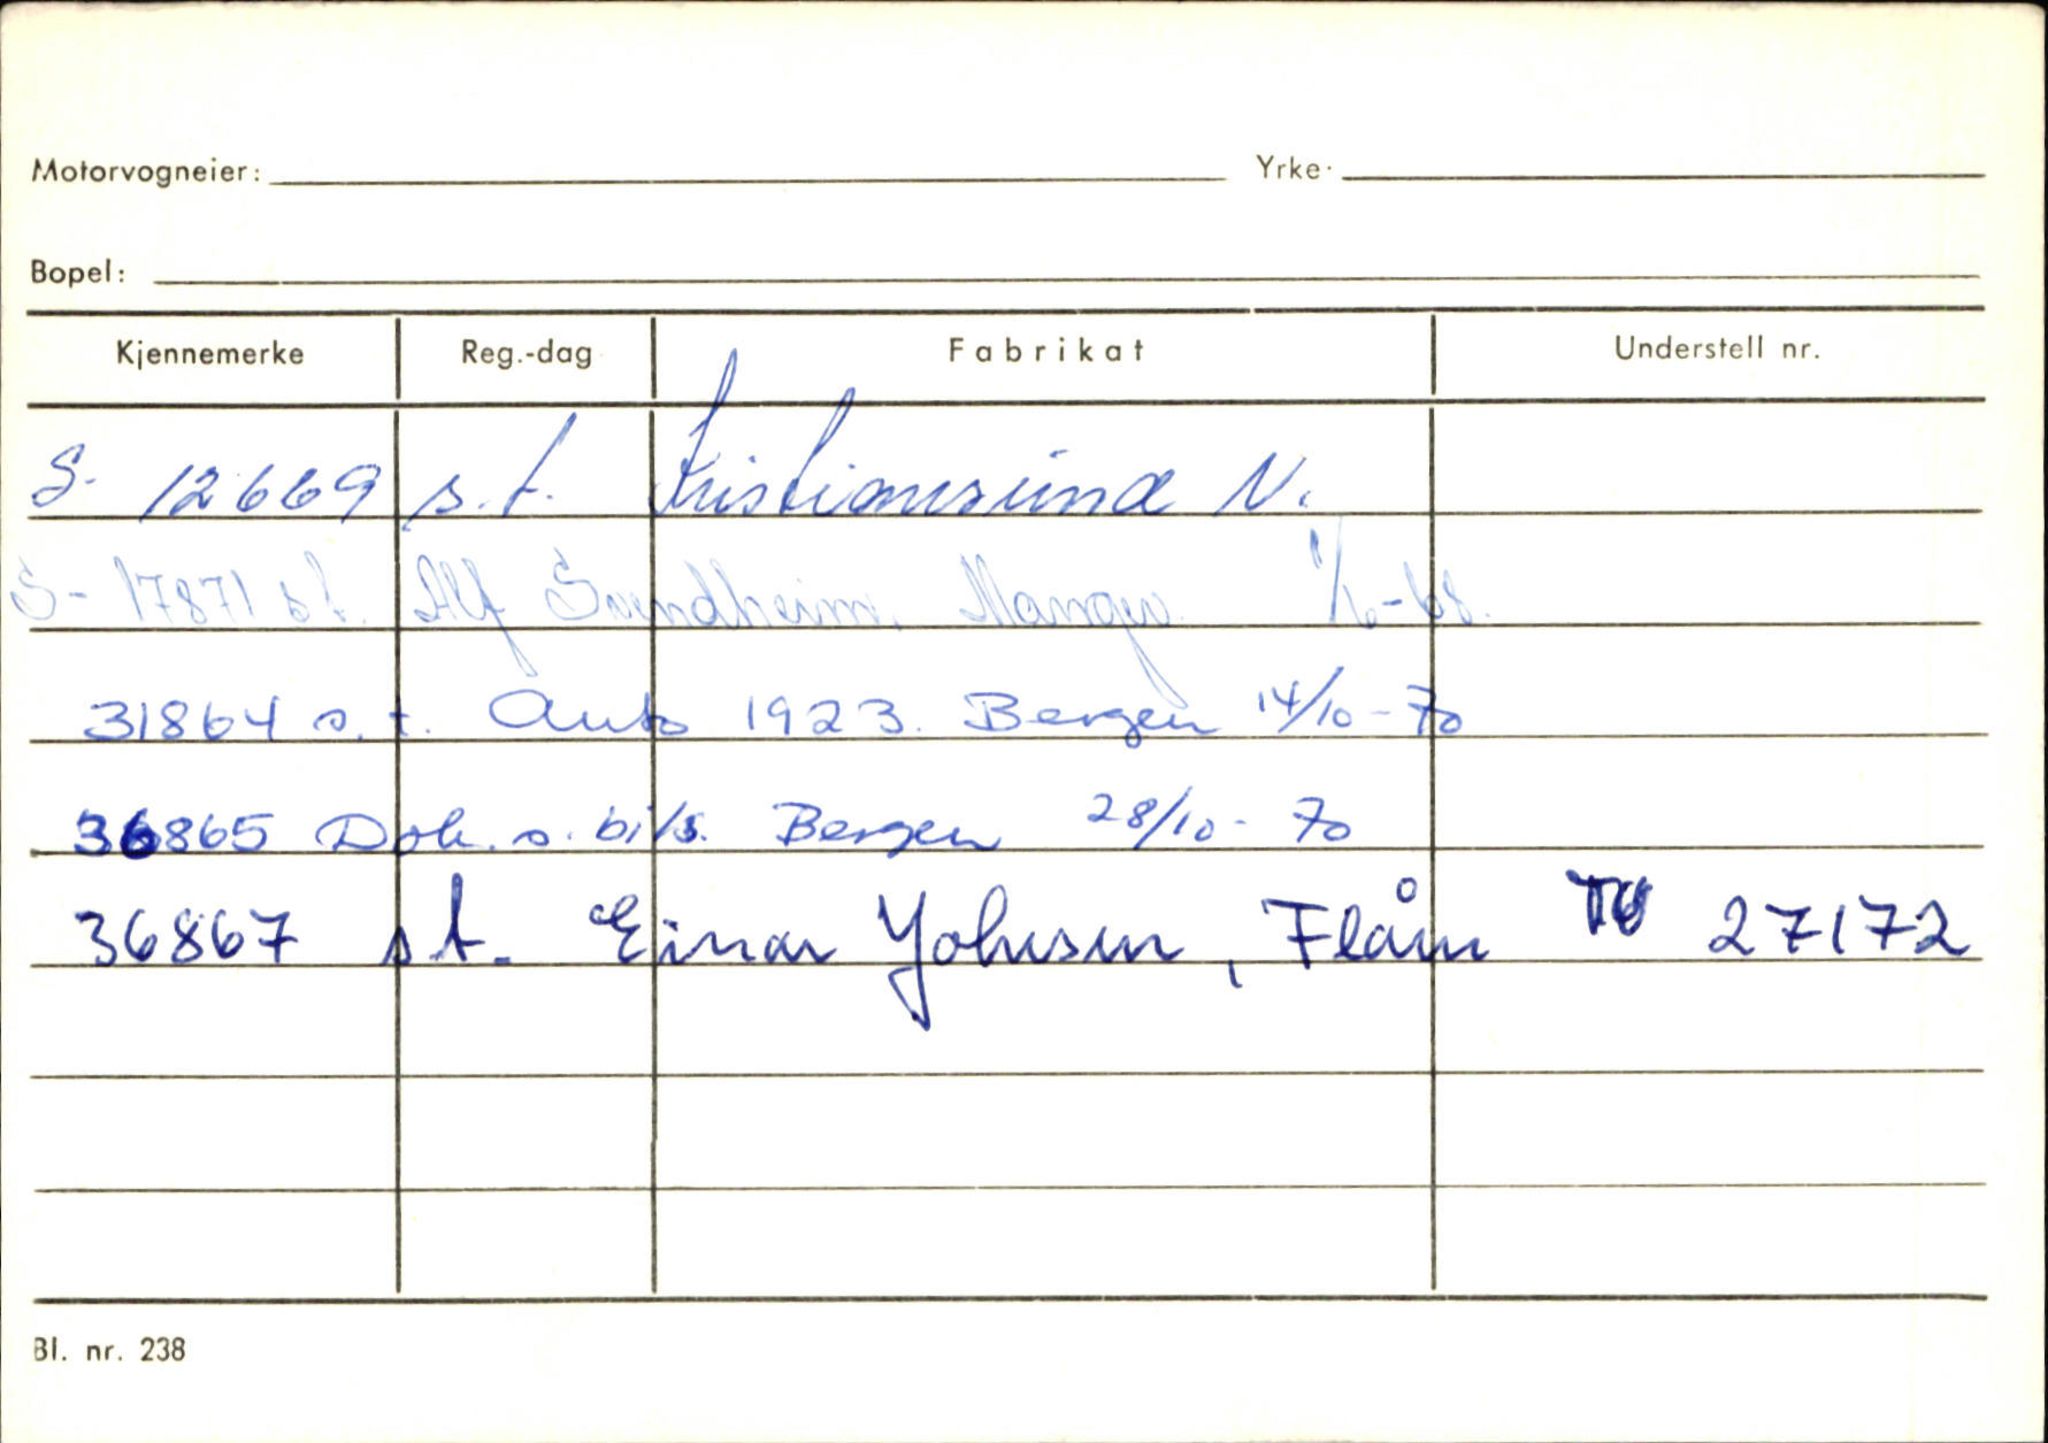 Motorvogneier: Yrke:
Bopel:
Kjennemerke Reg.-dag Fabrikat Understell nr.
S- 12669 s.t. Kristiansund N.
S- 17871 s.t. Alf Svendheim, Manger -68.
31864 s.t. Auto 1923. Bergen 14/10-70
36865 Dok. s. bils. Bergen 28/10-70
36867 st. Einar Johnsen, Flåm 27172
Bl. nr. 238